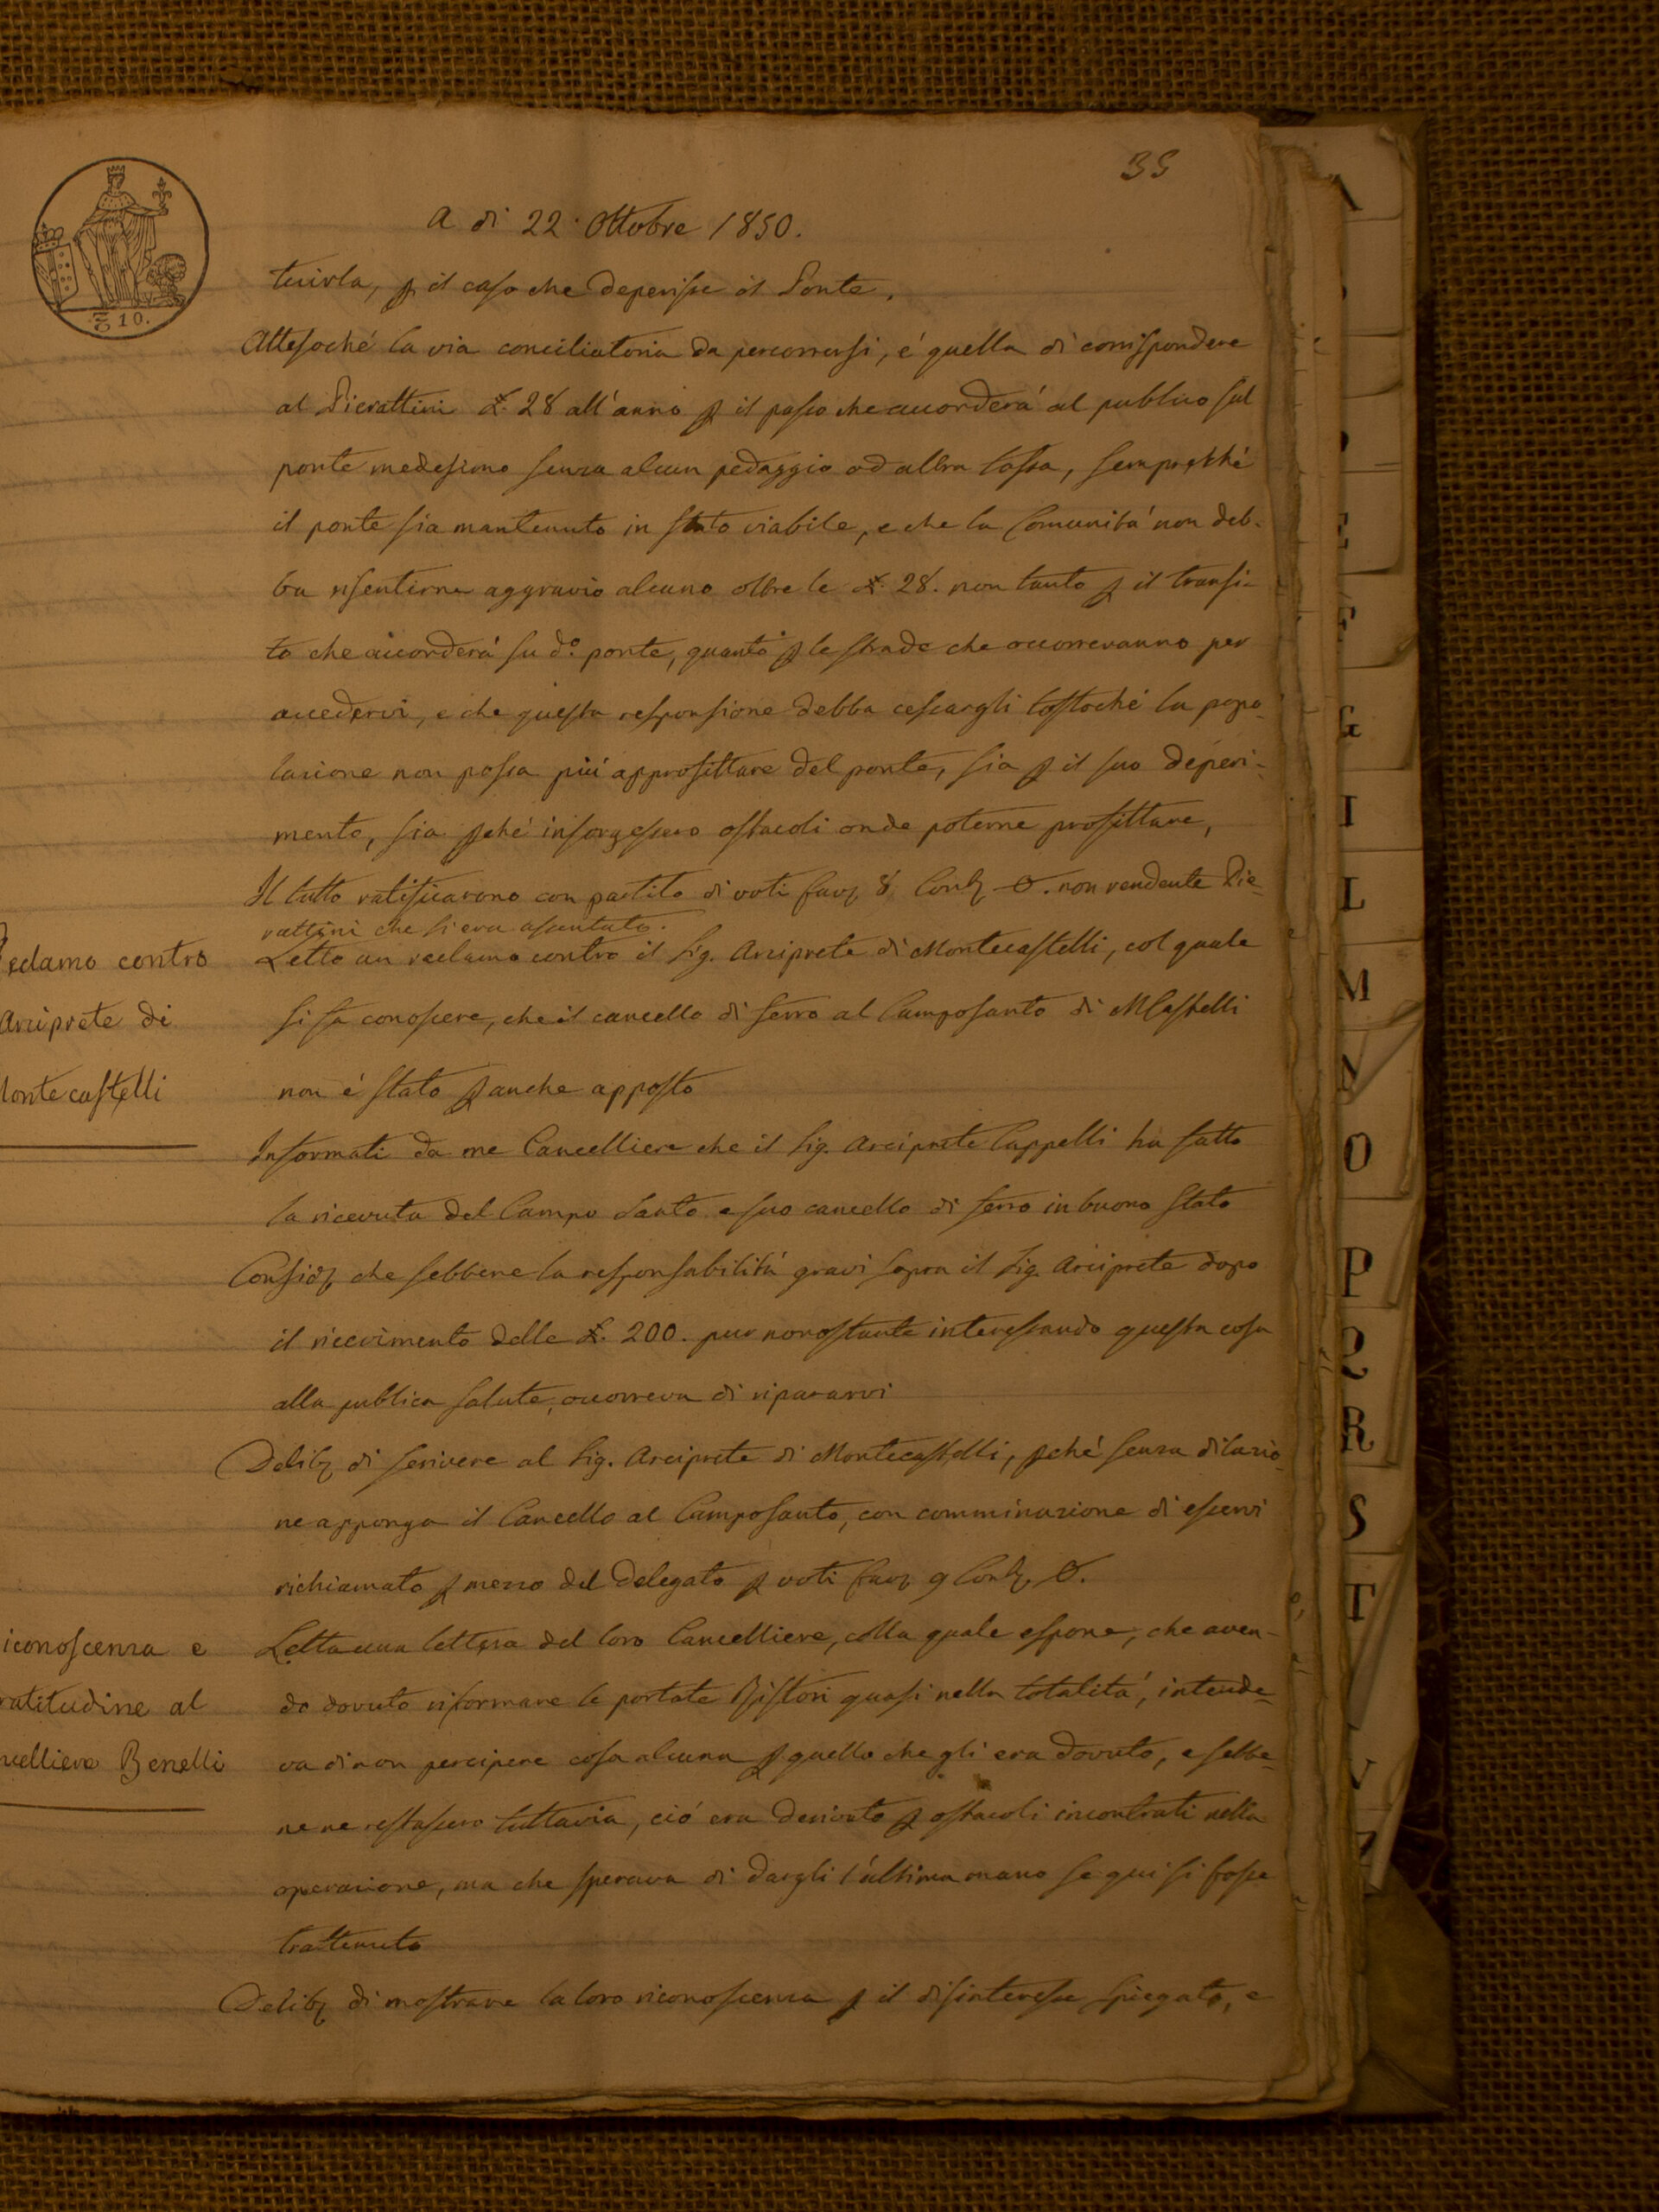 35
A di 22. Ottobre 1850.
tuirla, p il caso che deperisse il Ponte.
Attesoché la via conciliatoria da percorrersi, é quella di corrispondere
al Pierattini £. 28 all'anno p il passo che accorderá al publico sul
ponte medesimo senza alcun pedaggio od altra tassa, semprehé
il ponte sia mantenuto in stato viabile, e che la Comunitá non deb-
ba risentirne aggravio alcuno oltre le £. 28. non tanto p il transi-
to che accorderá su d.o ponte, quanto p le strade che occorreranno per
accedervi, e che questa responsione debba cessargli tostoché la popo-
lazione non possa piú approfittare del ponte, sia p il suo deperi-
mento, sia pché insorgessero ostacoli onde poterne profittare,
Il tutto ratificarono con partito di voti fav 8 Con O. non rendente Pie-
rattini che si era assentato.
Reclamo contro
Arciprete di
Montecastelli
Letto un reclamo contro il Sig. Arciprete di Montecastelli, col quale
si fa conoscere, che il cancello di ferro al Camposanto di MCastelli
non é stato p anche apposto
Informati da me Cancelliere che il Sig. Arciprete Cappelli ha fatto
la ricevuta del Campo Santo e suo cancello di ferro in buono stato
Consid che sebbene la responsabilitá gravi sopra il Sig. Arciprete dopo
il ricevimento delle £. 200. pur nonostante interessando questa cosa
alla publica salute, occorreva di ripararvi
Delib di scrivere al Sig. Arciprete di Montecastelli, pché senza dilazio-
ne apponga il Cancello al Camposanto, con comminazione di esservi
richiamato p mezzo del Delegato p voti fav 9 Con O.
iconoscenza e
ratitudine al
ncelliere Benelli
Letta una lettera del loro Cancelliere, colla quale espone, che aven-
do dovuto riformare le portate Bistori quasi nella totalitá, intende-
va di non percipere cosa alcuna p quello che gli era dovuto, e sebbe-
ne ne restassero tuttavia, ció era derivato p ostacoli incontrati nella
operazione, ma che sperava di dargli l'ultima mano se qui si fosse
trattenuto
Delib di mostrare la loro riconoscenza p il disinteresse spiegato, e
10.
A
E
F
G
I
L
M
N
O
P
Q
R
S
T
V
Z